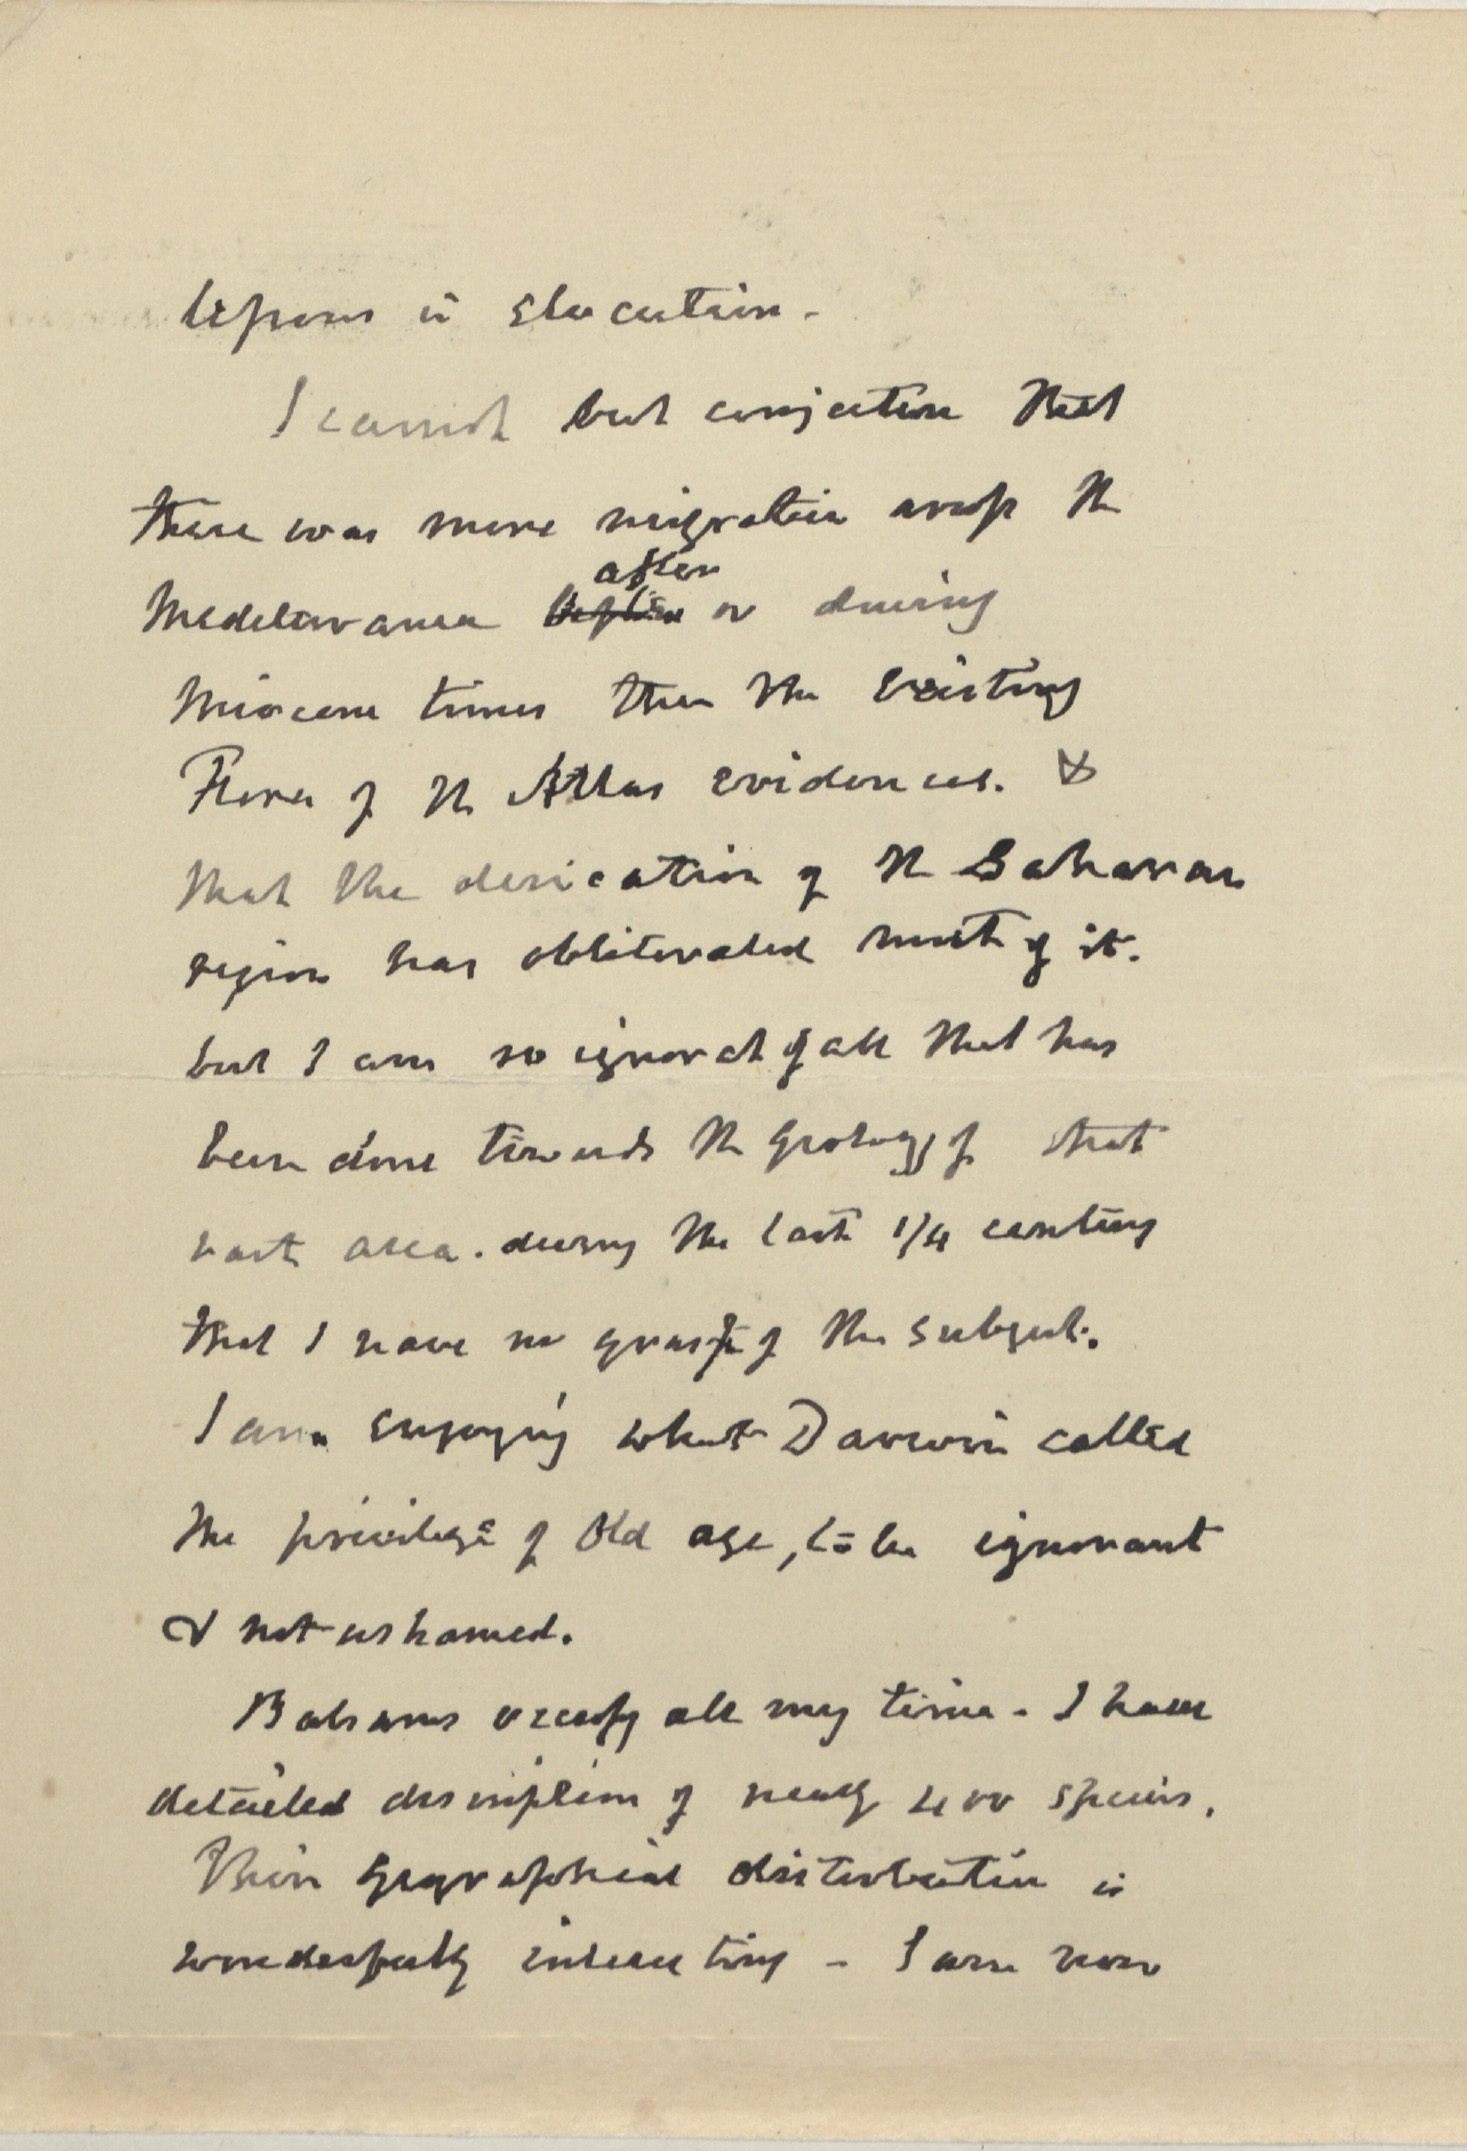 lessons in elocution.
I cannot but conjecture that
there was more migration across the
Mediterranean before after or during
Miocene times than the existing
Flora of the Atlas evidences. &
that the desication of the Saharan
region has obliterated most of it.
but I am so ignort of all that has
been done towards the geology of that
vast area. during the last 1/4 century
that I have no grasp of the subject.
I am enjoying what Darwin called
the privilege of old age, to be ignorant
& not ashamed.
Balsams occupy all my time - I have
detailed description of nearly 400 species.
Their geographical distribution is
wonderfully interesting - I am now